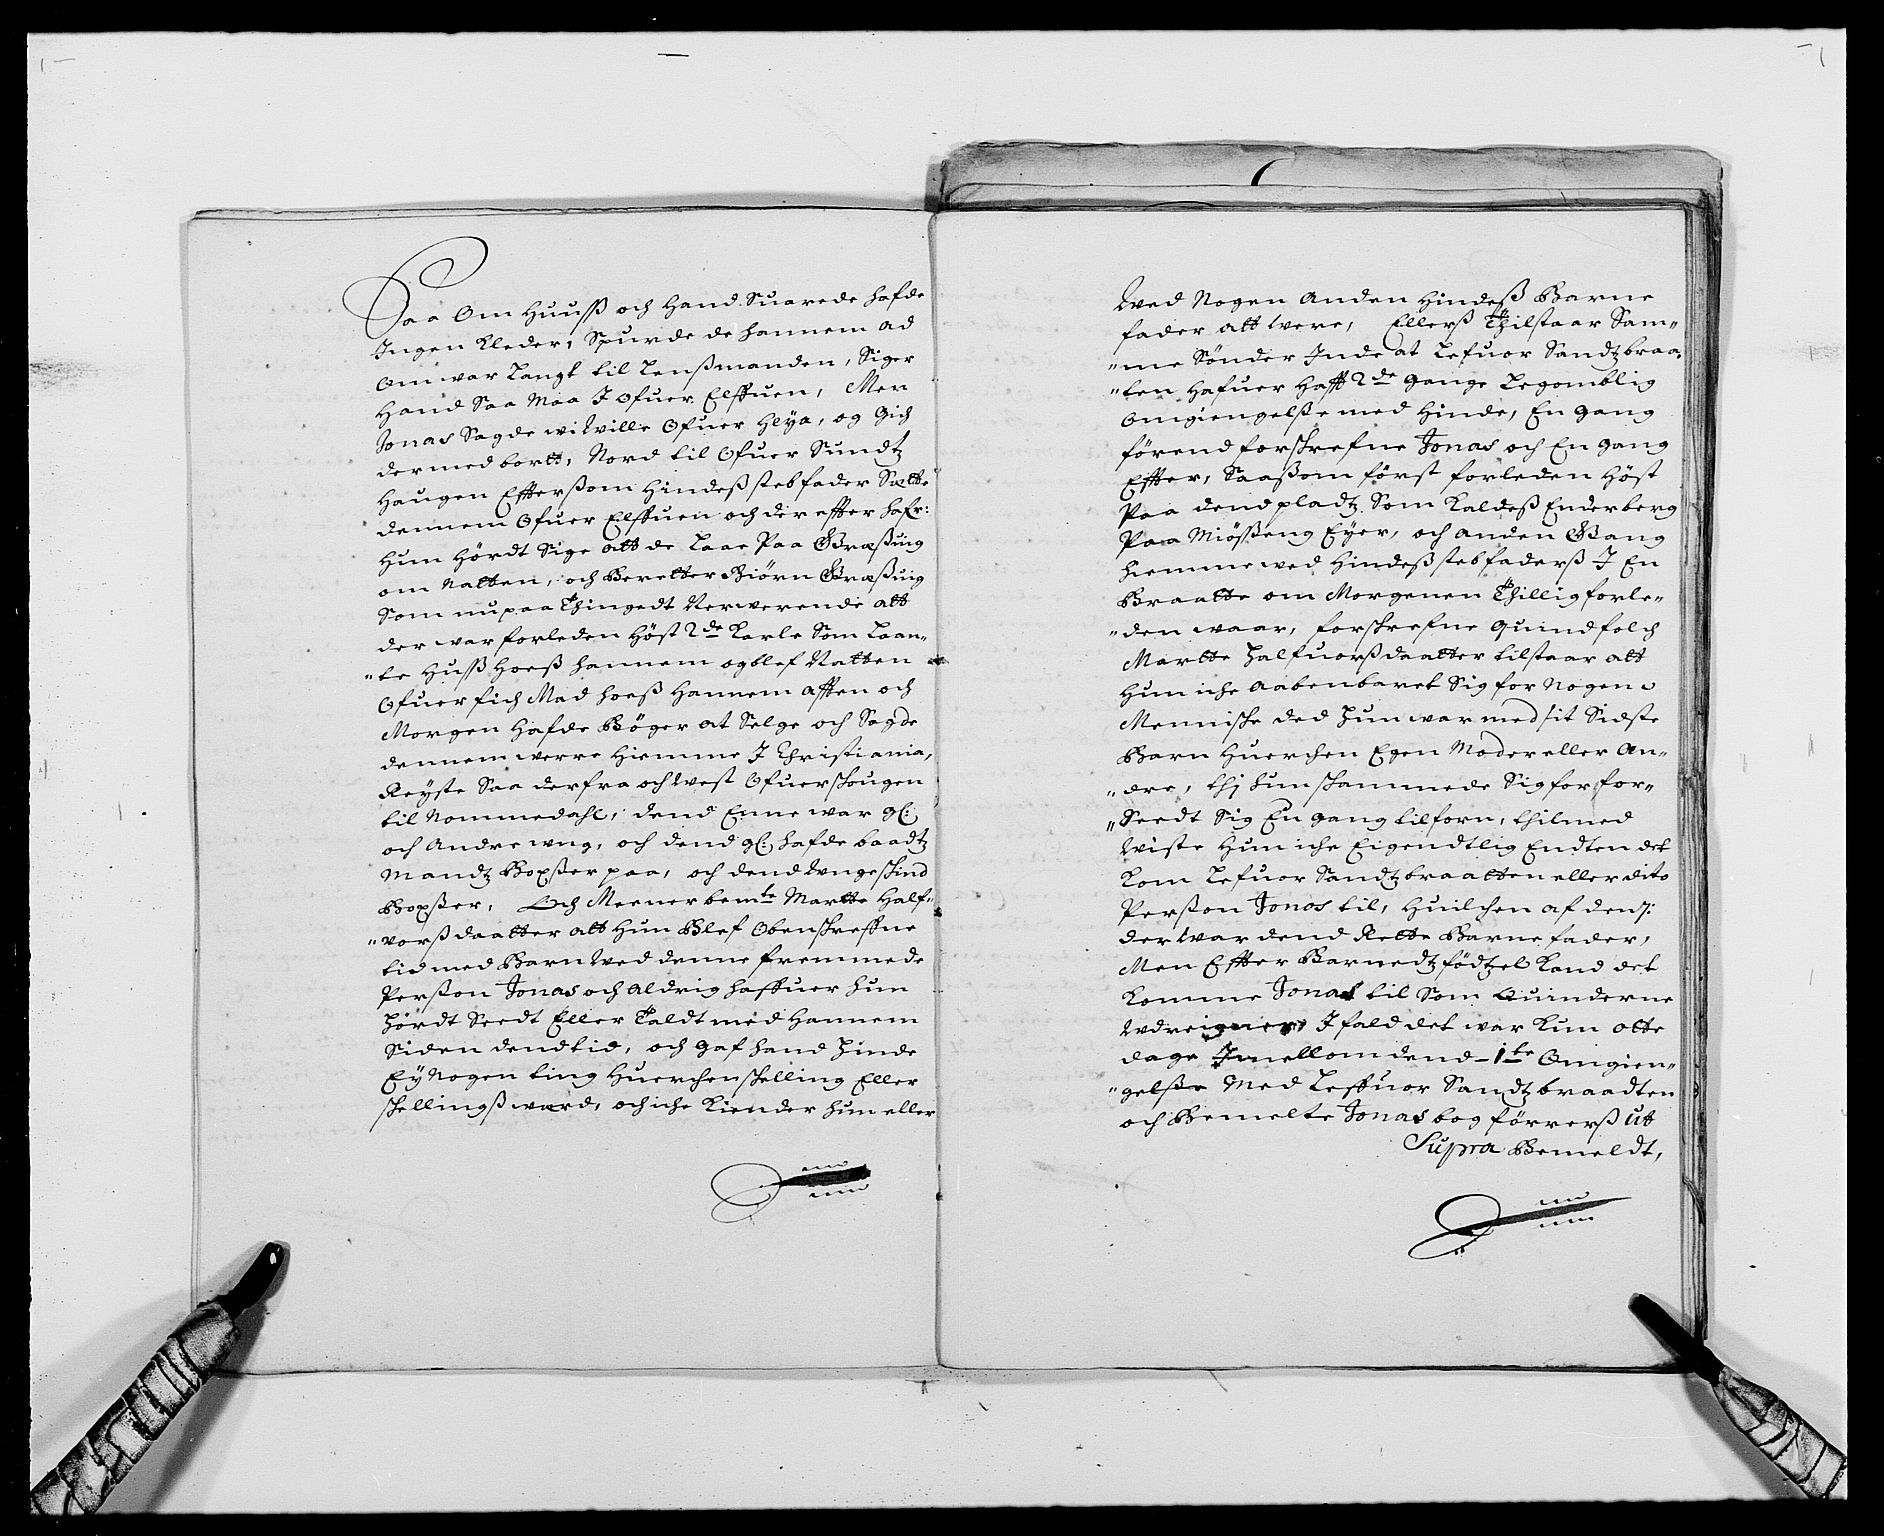 Saa Om Huuss och Hand Suarede hafde
Ingen Kleder, Spurde de hannem ad
Om war Langt til Lenssmanden, Siger
Hand Saa Maa I ofuer Elffuen, Men
Jonas Sagde wi wille Ofuer Hlya, og Gich
dermed bortt, Nord til Ofuer Sundtz
Haugen Effterssom Hindess stebfader Sætte
dennem Ofuer Elffuen och der effter hafr:
Hun Hördt Sige att de Laae Paa Græssuig
om Natten, och Beretter Biörn Græssuig
Som nu paa Thingedt Nerwerende att
der war forleden Höst 2de Karle Som Laan„
„te Huss hoess hannem og blef Natten
Ofuer fich Mad hoess Hannem afften och
Morgen Hafde Bøger at Selge och Sagde
dennem werre Hiemme I Christiania,
Reyste Saa derfra och West Ofuer skougen
til Nommedahl, dend Enne war gl:
och Andre ung, och dend gl: hafde baadtz
Mandtz Boxsser paa, och dend Unge skind
Boxsser, Och Meener bemte Martte Half„
„vorss daatter att Hun Blef Obenskreffne
tid med Barn Wed denne fremmede
Persson Jonas och Aldrig haffuer hun
Hørdt Seedt Eller Taldt med Hannem
Siden dend tid, och gaf hand Hinde
Ey Nogen ting Huerchen skelling Eller
skellingss werd, och iche Kiender hun eller
Wed Nogen Anden Hindess Barne
fader att were, Ellerss Thilstaar Sam„
„me Sönder Inde at Lefuor Sandtzbraa„
„ten Hafuer Hafft 2de Gange Legomblig
Omgiengelsse med Hinde, En gang
förend forskrefne Jonas och En gang
Effter, Saassom först forleden Höst
Paa dend pladtz Som Kaldess Enderberg
Paa Miösseng Eyer, och Anden Gang
hiemme wed Hindess stebfaderss I En
Braatte om Morgenen Thillig forle„
„den waar, forskrefne Quindfolch
Martte Halfuorssdaatter tilstaar att
Hun iche Aabenbaret Sig for Nogen
Menniske ded Hun war med sit Sidste
Barn Huerchen Egen Moder eller An„
„dre, thj hun skammede Sig for for„
„Seedt Sig En gang tilforn, thilmed
Wiste Hun iche Eigendtlig Endten det
Kom Lefuor Sandtzbraatten eller dito
Persson Jonos til, Huilchen af denn:
der War dend Rette Barne fader,
Men Effter Barnedtz födtzel Kand det
Komme Jonas til Som Quinderne
Udreigner, I fald det war Kun otte
dage Imellom dend 1te Omgien„
„gelsse Med Leffuor Sandtzbraadten
och Bemelte Jonas bog förrerss ut
Supra Bemeldt,